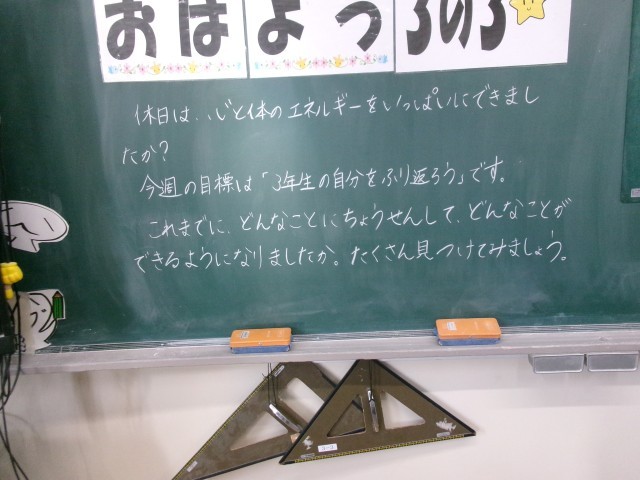 おはよう 3の3
休日は、心と体のエネルギーをいっぱいにできまし
たか?
今週の目標は「3年生の自分をふり返ろう」です。
これまでに、どんなことにちょうせんして、どんなことが
できるようになりましたか。たくさん見つけてみましょう。